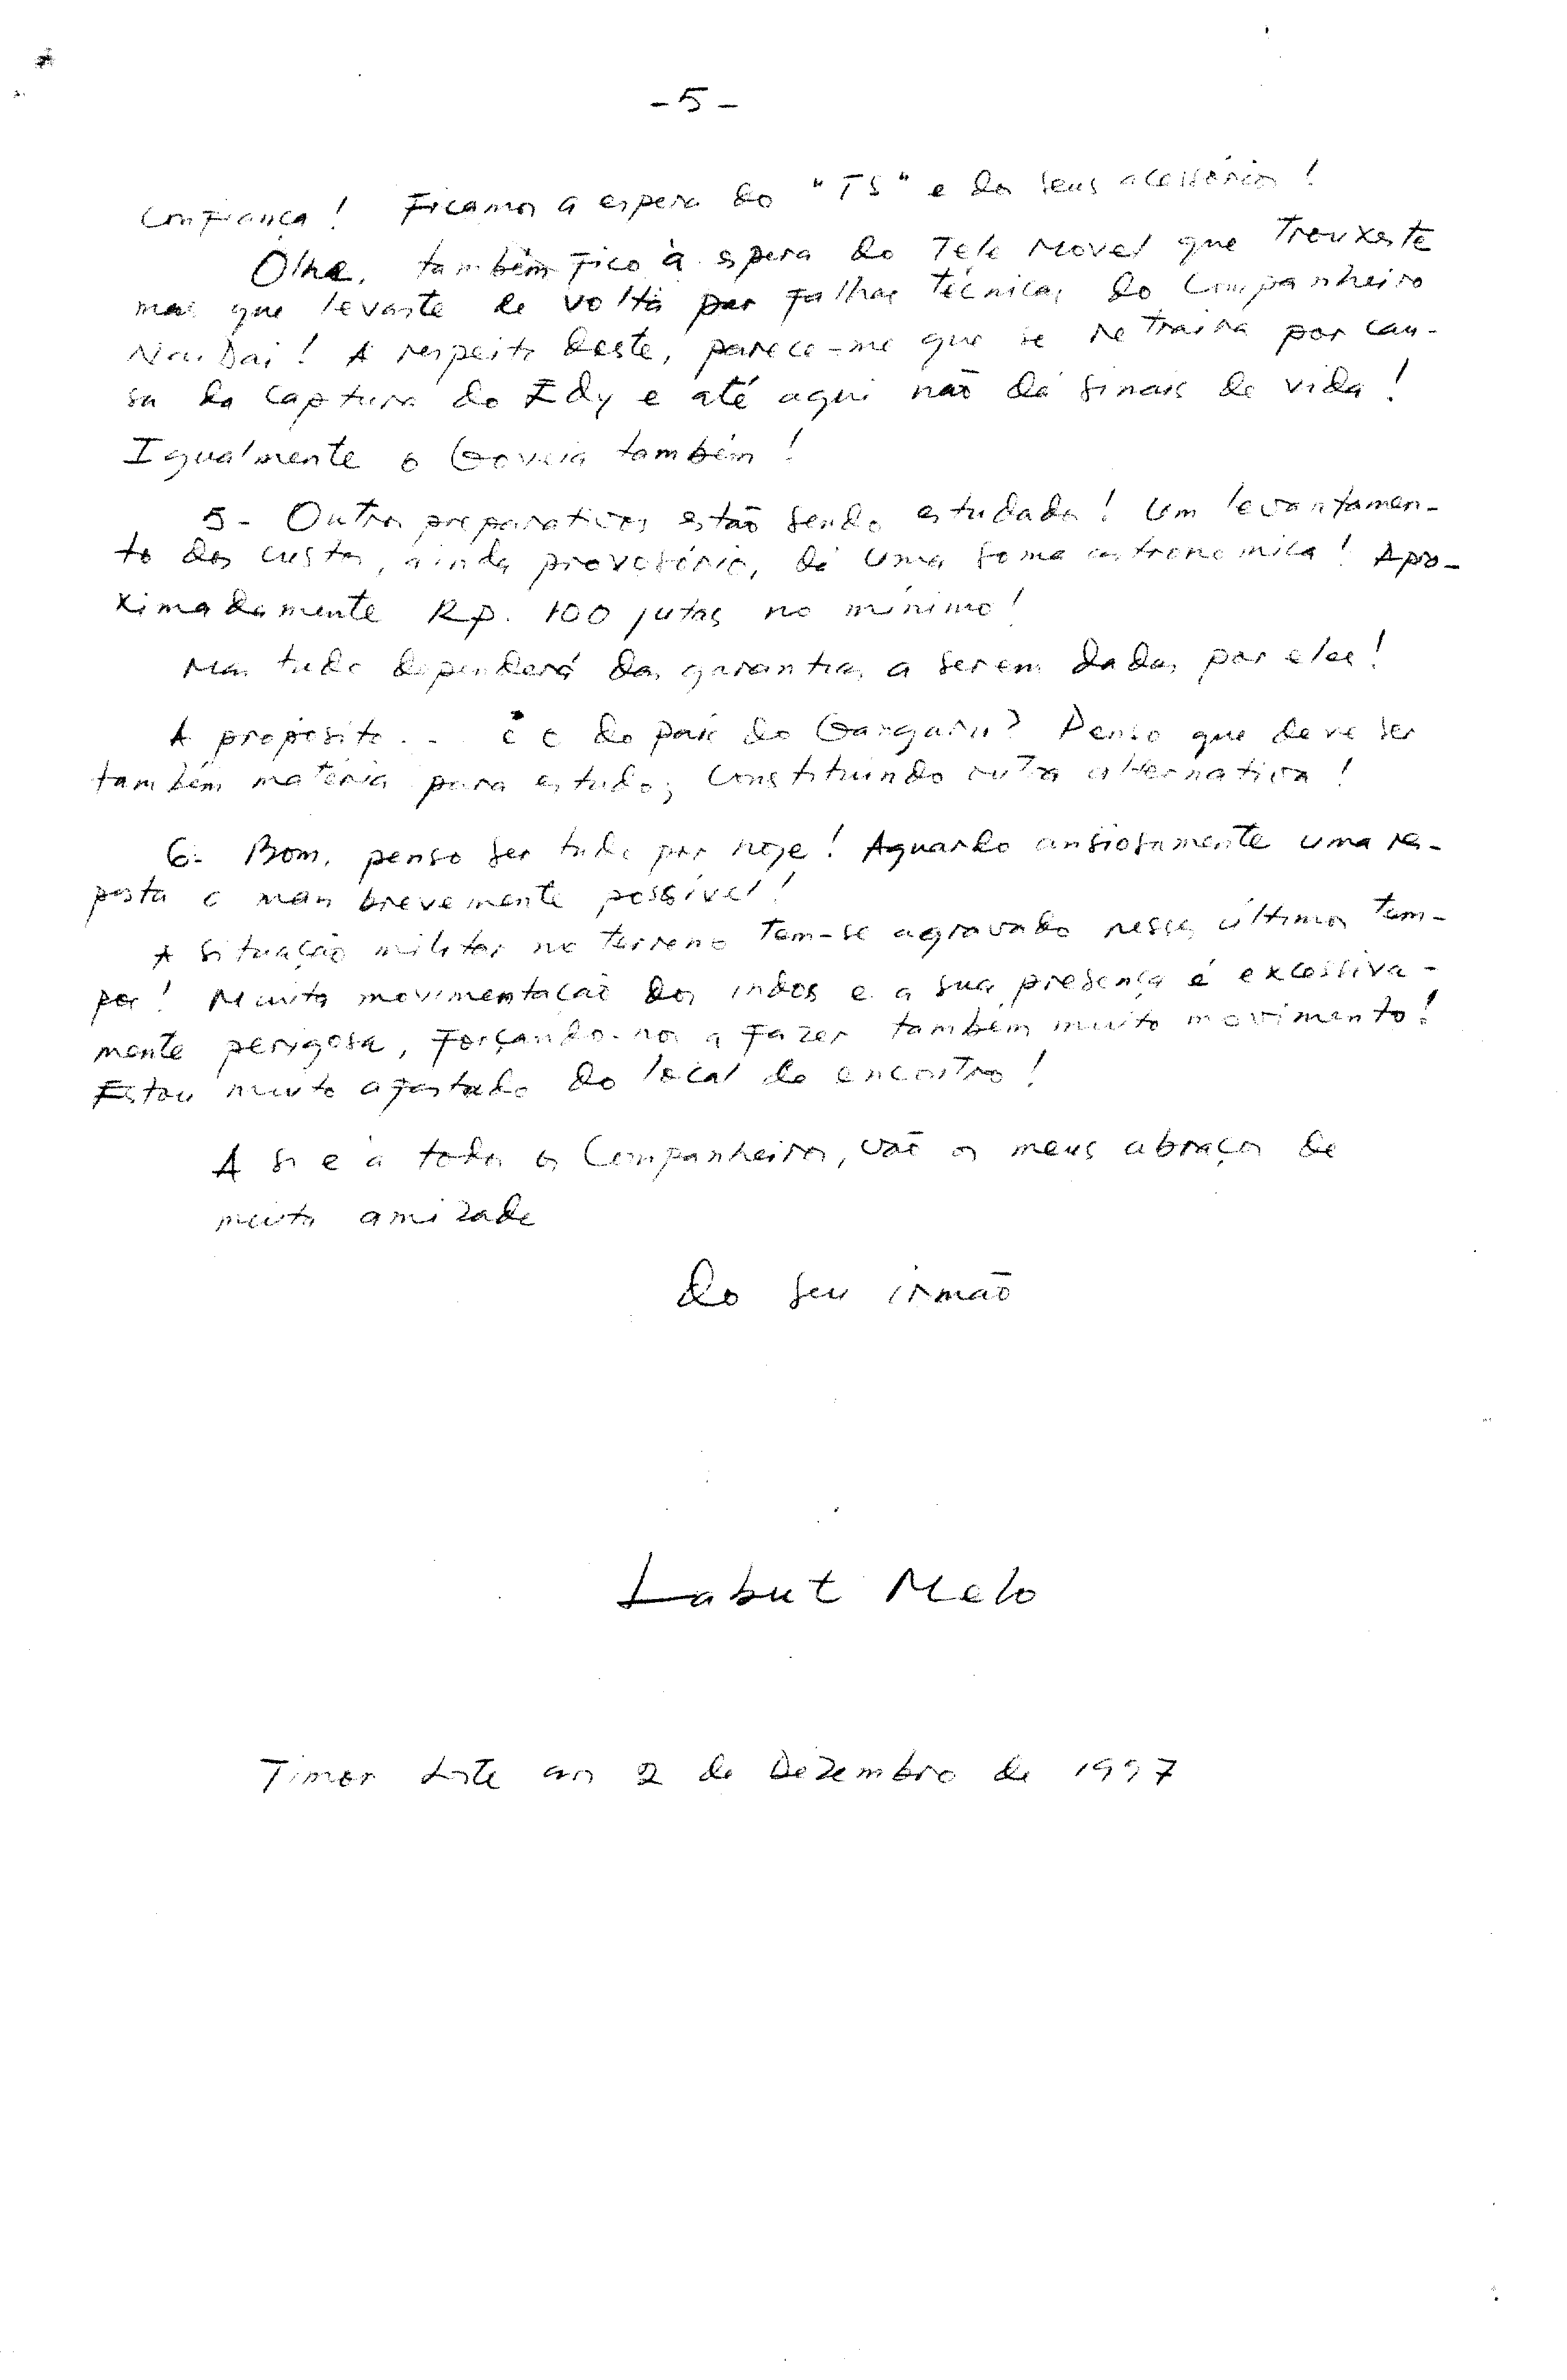 - 5 -
Confiança! Ficamos a espera do "TS" e dos seus acessórios!
Olhe, também fico à espera do Tele Movel que trouxeste
mas que levaste de volta por falhas técnicas do Companheiro
! A respeito deste, parece-me que se retraira por cau-
sa da captura do Edy e até aqui não dá sinais de vida!
Igualmente o Gouveia também!
5- Outros preparativos estão sendo estudados! Um levantamen-
to dos custos, ainda provosório, dá uma soma astronomica! Apro-
ximadamente Rp. 100 jutas no minimo!
Mas tudo dependerá das garantias a serem dadas por eles!
A propósito... e do país do Canguru? Penso que deve ser
também matéria para estudo; constituindo outra alternativa!
6- Bom, penso ser tudo por hoje! Aguardo ansiosamente uma res-
posta o mais brevemente possível!
A situação militar no terreno tem-se agravado nesses últimos tem-
pos! Muita movimentação dos indos e a sua presença é excessiva-
mente perigosa, forçando-nos a fazer também muito movimento!
Estou muito afastado do local de encontro!
A si e a todos os Companheiros, vão os meus abraços de
muita amizade
do seu irmão
Labut Melo
Timor Leste aos 2 de Dezembro de 1997